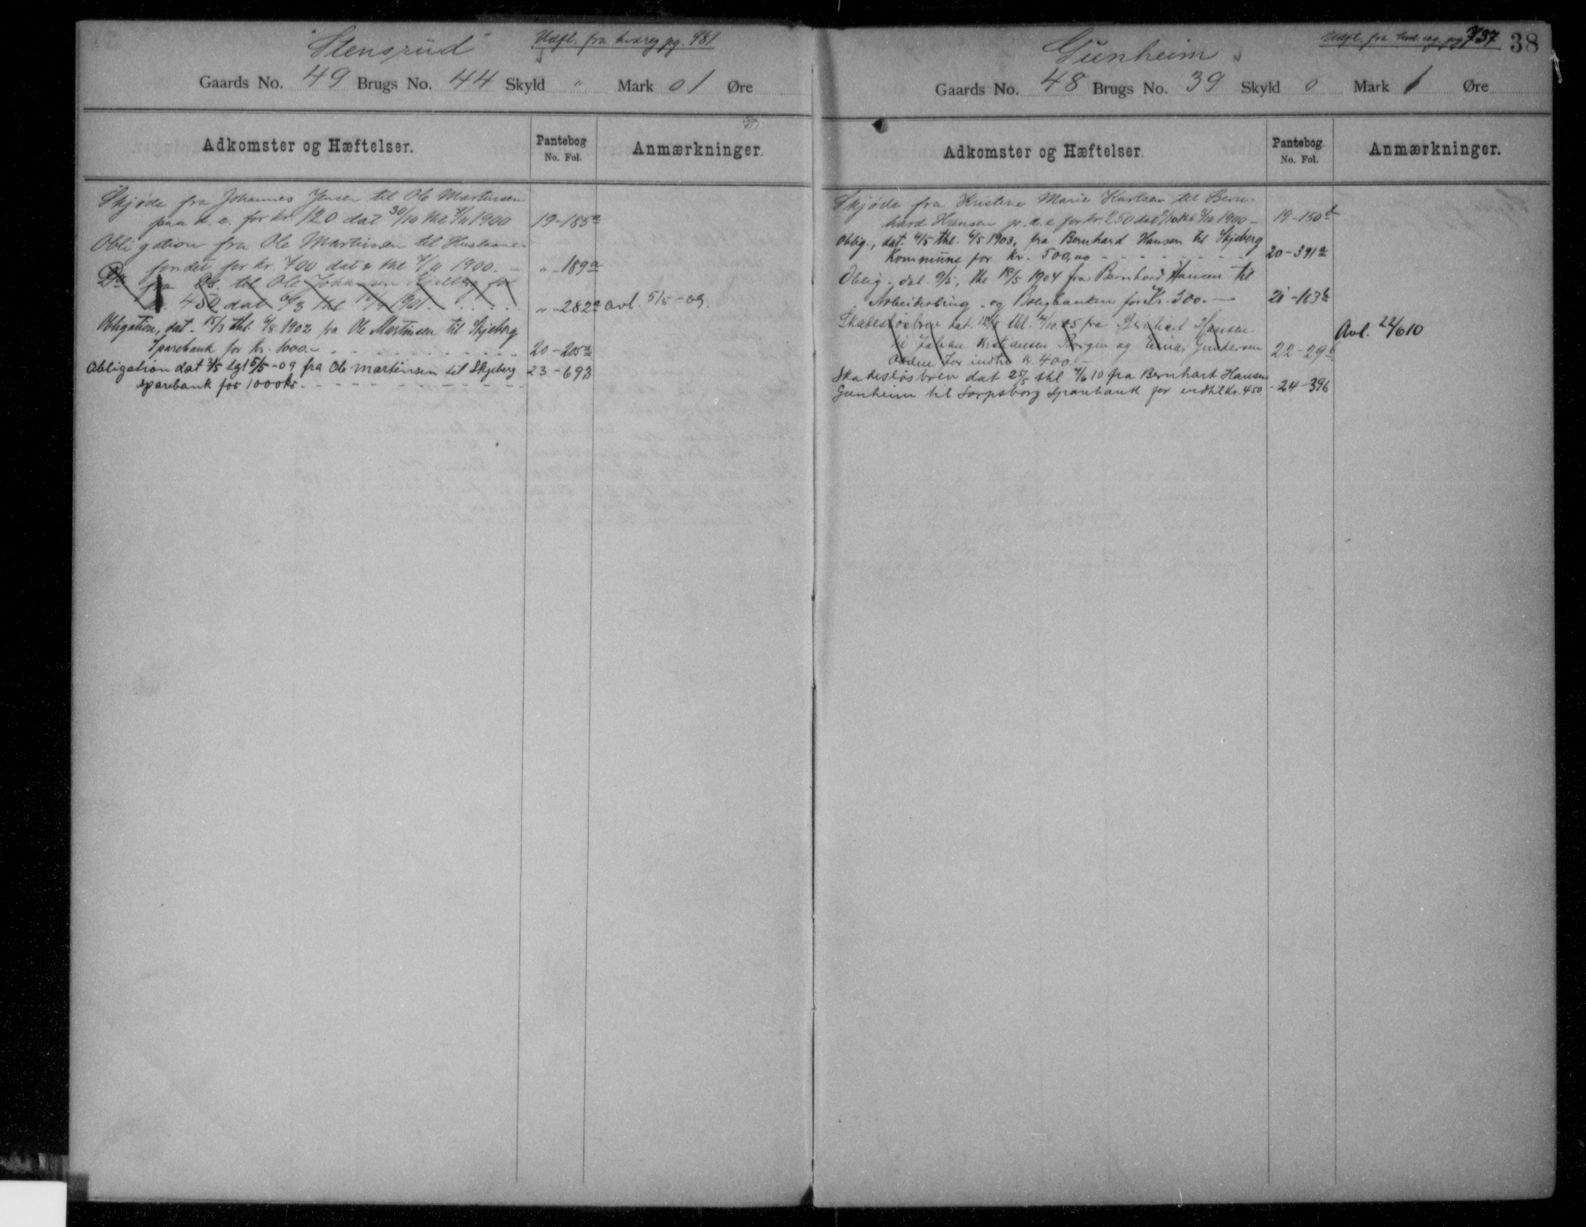 "Stensrud"
Udfl. fra hvdreg pg. 981
Gaards No. 49 Brugs No. 44 Skyld " Mark 01 Øre
Adkomster og Hæftelser.
Pantebog
No. Fol.
Anmærkninger.
Skjøde fra Johannes Jensen til Ole Martinsen
paa d. e. for kr. 120 dat 30/10 thl 1900 19-185a
Obligation fra Ole Martinsen til
fondet for kr. 400 dat & thl 1900. " -189a
Do fra Ds. til Ole Johansen for
450 dat thl 1901. " -282a avl. 5/5-09.
Obligation, dat. 15/3 thl. 1902 fra Ole Martinsen til Skjeberg
Sparebank for kr. 1000.- 20-205a
Obligation dat 3/5 tgl 5/5-09 fra Ole Martinsen til Skjeberg 23-693
sparebank for 1000 kr.
38
Gunheim
Udfl. fra hvd. reg pg 737
Gaards No. 48 Brugs No. 39 Skyld 0 Mark 1 Øre
Adkomster og Hæftelser.
Pantebog
No. Fol.
Anmærkninger.
Skjøde fra Kristine Marie Karlsen til Bern-
hard Hansen p. d. e for kr. 250 dat thl 1900 - 19-150
Oblig., dat. 4/5 thl. 4/5 1903, fra Bernhard Hansen til Skjeberg
Kommune for kr. 500,00 20-391a
Oblig. dat. 9/5, thl 18/5 1904 fra Bernhard Hansen til
Arbeiderbrug - og Boligbanken for Kr. 500.- 21-163b
Skadesløsbrev dat. thl. 05 fra Bernhard Hansen
til Kristiansen Borgen og Einar Gundersen
for indtil kr. 400.- 22-29 Avl. 22/6 10
Skadesløsbrev dat 25/5 thl 4/6 10 fra Bernhart Hansen
Gunheim til Sarpsborg Sparebank for indtil kr. 450 24-396